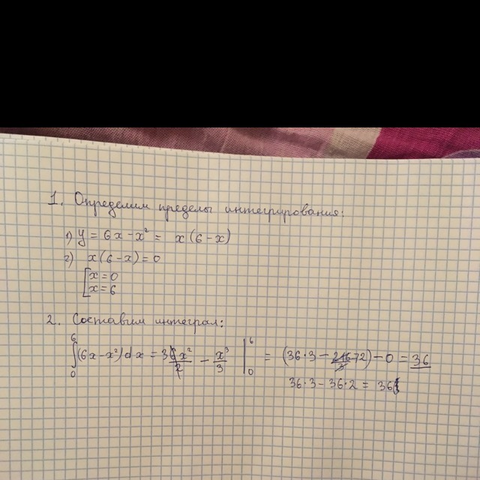 1. Определим пределы интегрирования:
1) y = 6x - x² = x(6-x)
2) x(6-x) = 0
[x = 0
[x = 6
2. Составим интеграл:
∫₀⁶ (6x - x²) dx = 3x² - x³/3 |₀⁶ = (36·3 - 72) - 0 = 36
36·3 - 36·2 = 36